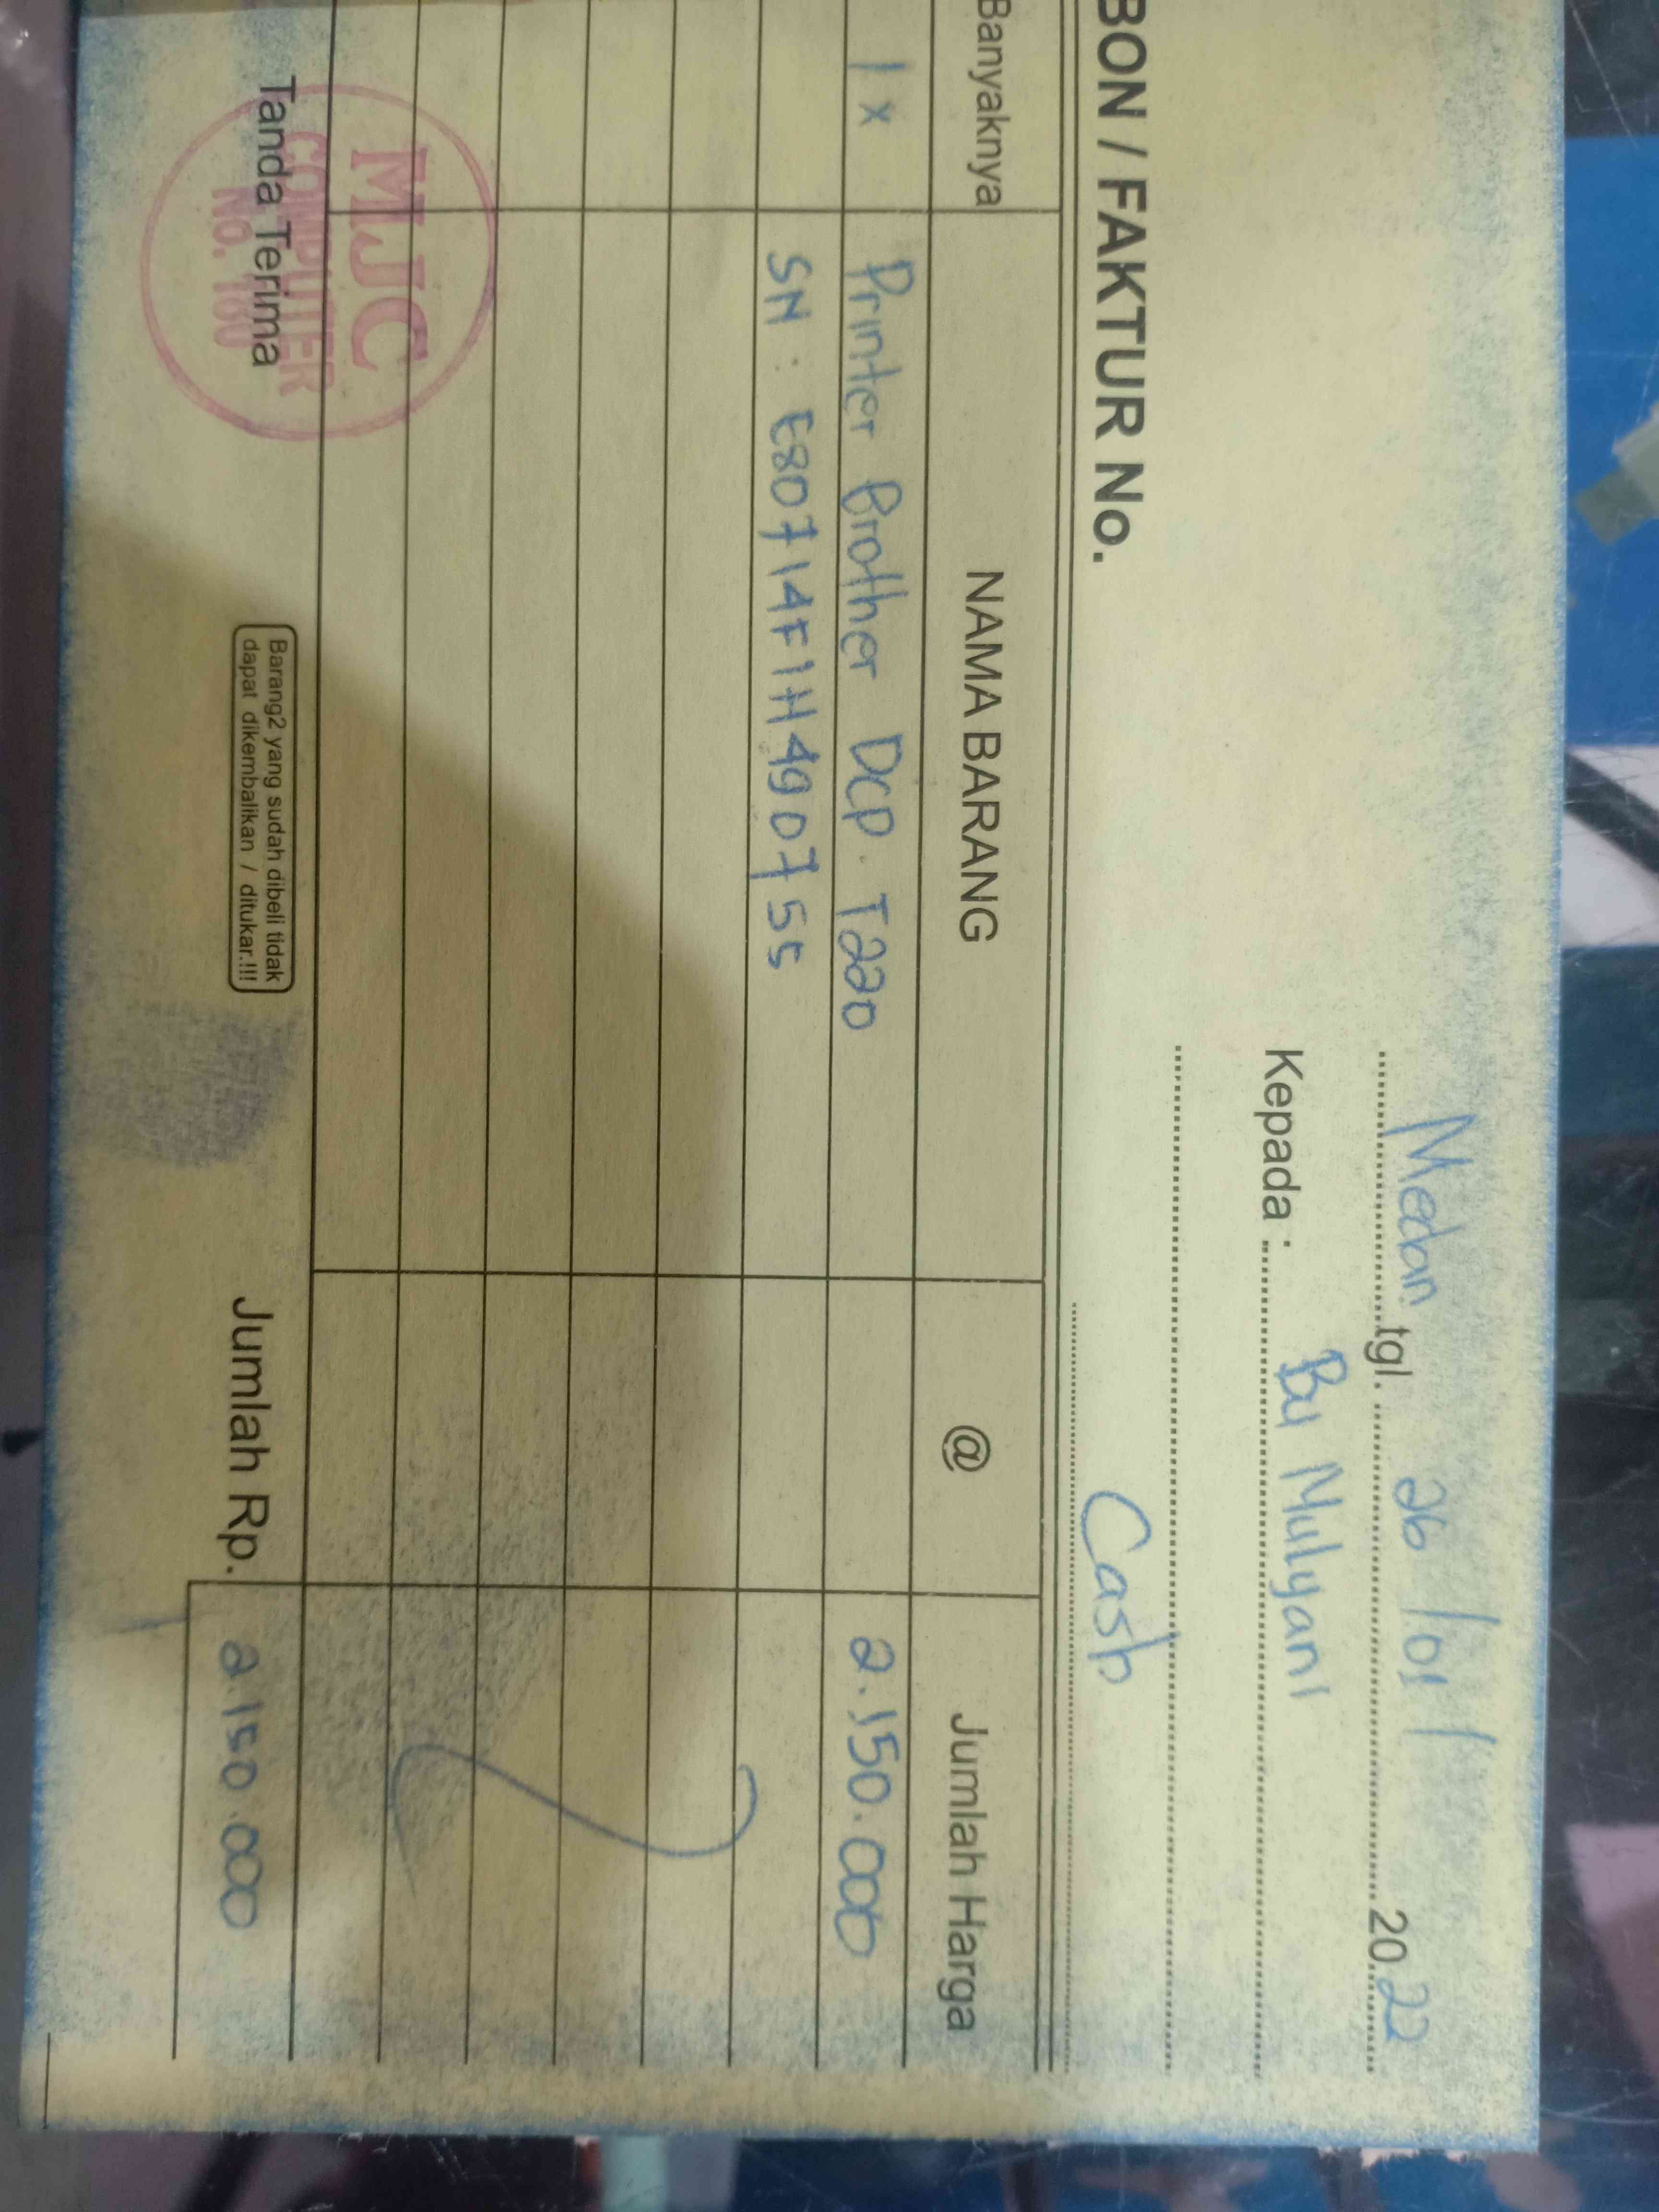 Medan tgl. 26/01/ 2022
Kepada : Bu Mulyani
Cash
BON / FAKTUR No.
Banyaknya NAMA BARANG @ Jumlah Harga
1 x Printer Brother DCP. T220 2.150.000
SN : E80714F1H490755
Tanda Terima
MJC
COMPUTER
NO. 180
Barang2 yang sudah dibeli tidak
dapat dikembalikan / ditukar.!!!
Jumlah Rp. 2.150.000